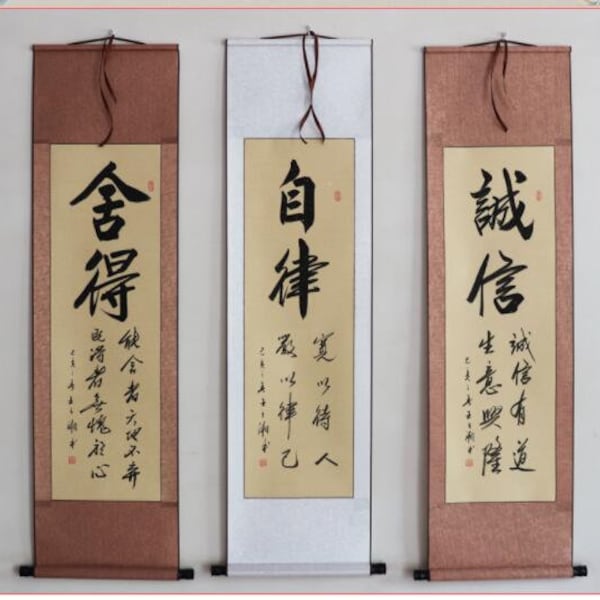 舍得
能舍者天地不弃
既得者無愧於心
自律
寬以待人
嚴以律己
誠信
誠信有道
生意興隆